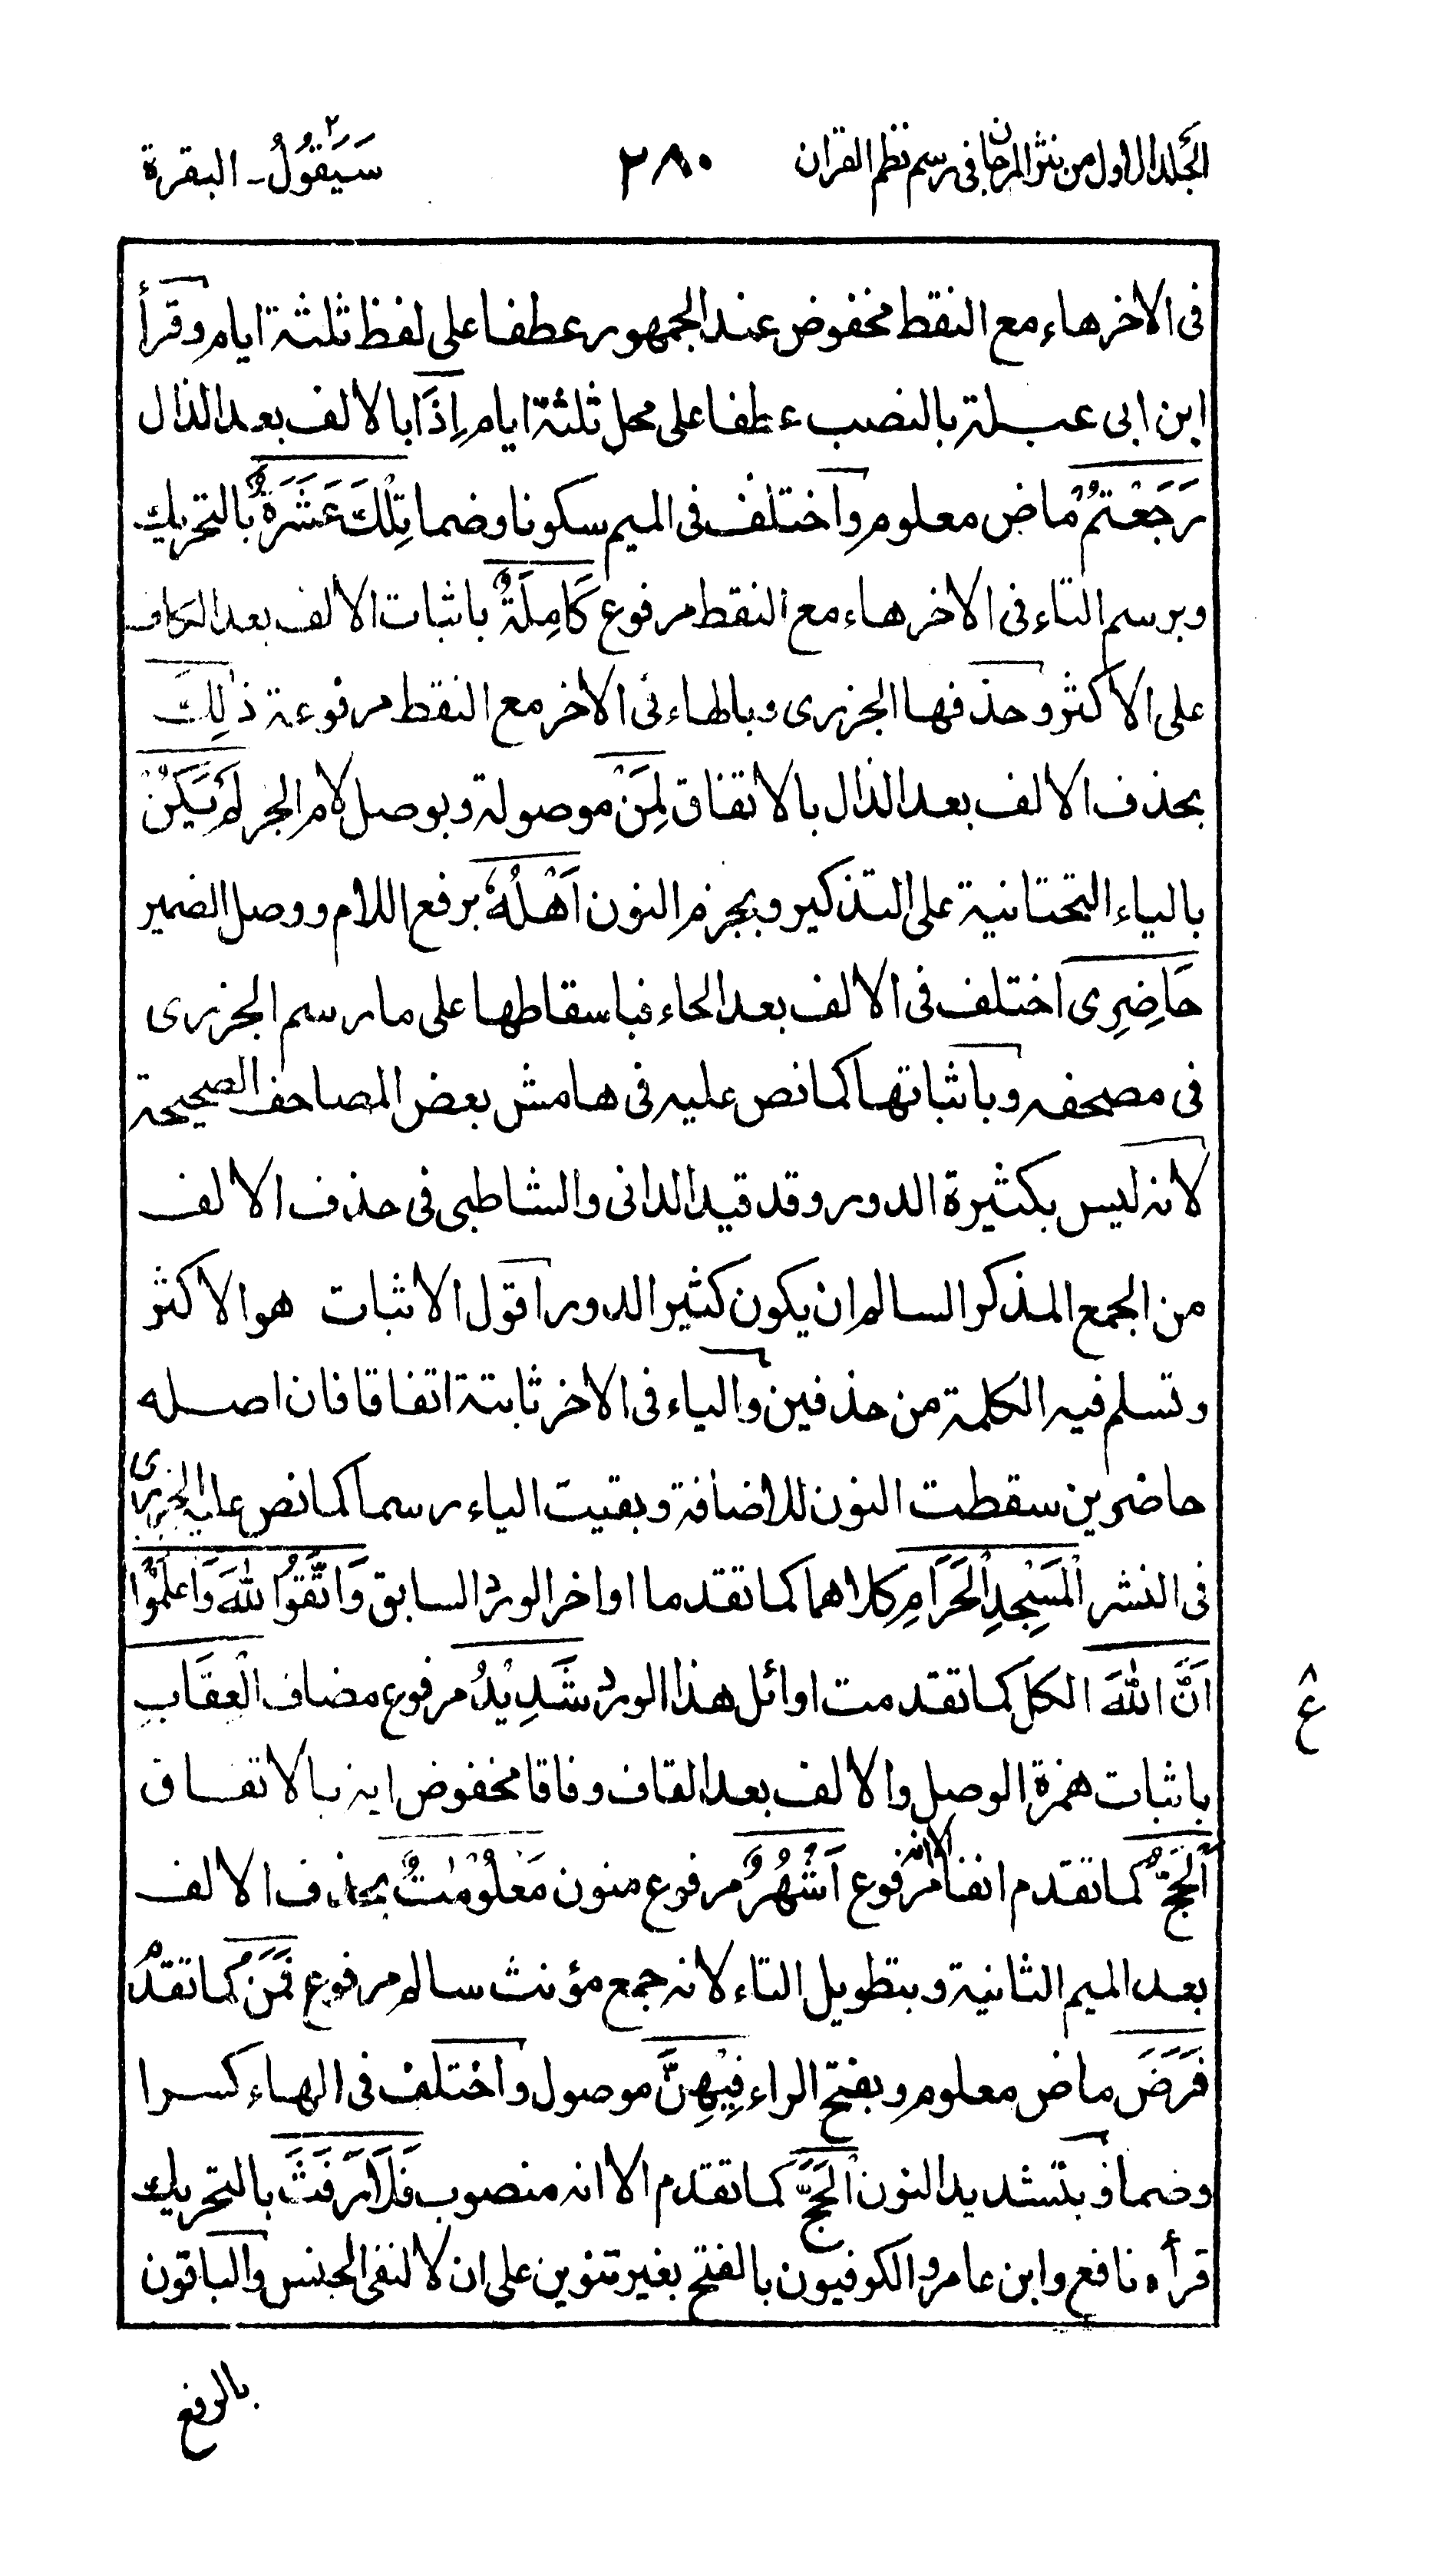 الجلد الاول من نثر المرجان فى رسم نظم القران
٢٨٠
سَيَقُوْلُ ٢ - البقرة
فى الاخرهاء مع النقط مخفوض عند الجمهور عطفا على لفظ ثلثة ايام وقرأ
ابن ابى عبلة بالنصب عطفا على محل ثلثة ايام اِذَا بالالف بعد الذال
رَجَعْتُمْ ماض معلوم واختلف فى الميم سكونا وضما تِلْكَ عَشَرَةٌ بالتحريك
وبرسم التاء فى الاخر هاء مع النقط مرفوع كَامِلَةٌ باثبات الالف بعد الكاف
على الاكثر وحذفها الجزرى وبالهاء فى الاخر مع النقط مرفوعة ذٰلِكَ
بحذف الالف بعد الذال بالاتفاق لِمَنْ موصولة وبوصل لام الجر لَمْ يَكُنْ
بالياء التحتانية على التذكير وبجزم النون اَهْلُهٗ برفع اللام ووصل الضمير
حَاضِرِى اختلف فى الالف بعد الحاء فباسقاطها على ما رسم الجزرى
فى مصحفه وباثباتها كما نص عليه فى هامش بعض المصاحف الصحيحة
لانه ليس بكثيرة الدور وقد قيد الدانى والشاطبى فى حذف الالف
من الجمع المذكر السالم ان يكون كثير الدور اقول الاثبات هو الاكثر
وتسلم فيه الكلمة من حذفين والياء فى الاخر ثابتة اتفاقا فان اصله
حاضرين سقطت النون للاضافة وبقيت الياء رسما كما نص عليه الجزرى
فى النشر الْمَسْجِدِ الْحَرَامِ كلاهما كما تقدما اواخر الورد السابق وَاتَّقُوا اللهَ وَاعْلَمُوْا
اَنَّ اللهَ الكل كما تقدمت اوائل هذا الورد شَدِيْدُ مرفوع مضاف الْعِقَابِ
باثبات همزة الوصل والالف بعد القاف وفاقا مخفوض اية بالاتفاق
ع ٨
اَلْحَجُّ كما تقدم انفا الا انه مرفوع اَشْهُرٌ مرفوع منون مَعْلُوْمٰتٌ بحذف الالف
بعد الميم الثانية وبتطويل التاء لانه جمع مؤنث سالم مرفوع فَمَنْ كما تقدم
فَرَضَ ماض معلوم وبفتح الراء فِيْهِنَّ موصول واختلف فى الهاء كسرا
وضما وبتشديد النون الْحَجَّ كما تقدم الا انه منصوب فَلَا رَفَثَ بالتحريك
قرأه نافع وابن عامر والكوفيون بالفتح بغير تنوين على ان لا لنفى الجنس والباقون
بالرفع